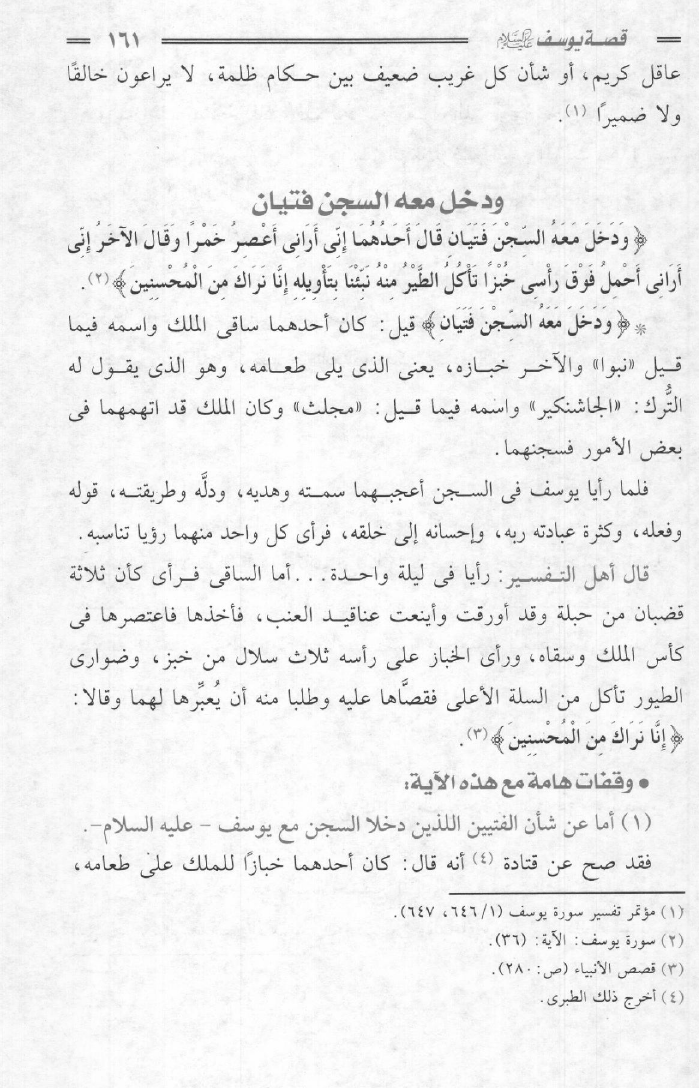 قصة يوسف عليه السلام ١٦١
عاقل كريم، أو شأن كل غريب ضعيف بين حكام ظلمة، لا يراعون خالقًا
ولا ضميرًا (١).
ودخل معه السجن فتيان
﴿ وَدَخَلَ مَعَهُ السِّجْنَ فَتَيَانِ قَالَ أَحَدُهُمَا إِنِّى أَرَانِى أَعْصِرُ خَمْرًا وَقَالَ الآخَرُ إِنِّى
أَرَانِى أَحْمِلُ فَوْقَ رَأْسِى خُبْزًا تَأْكُلُ الطَّيْرُ مِنْهُ نَبِّئْنَا بِتَأْوِيلِهِ إِنَّا نَرَاكَ مِنَ الْمُحْسِنِينَ ﴾ (٢).
* ﴿ وَدَخَلَ مَعَهُ السِّجْنَ فَتَيَانِ ﴾ قيل: كان أحدهما ساقى الملك واسمه فيما
قيل «نبوا» والآخر خبازه، يعنى الذى يلى طعامه، وهو الذى يقول له
التُّرك: «الجاشنكير» واسمه فيما قيل: «مجلث» وكان الملك قد اتهمهما فى
بعض الأمور فسجنهما.
فلما رأيا يوسف فى السجن أعجبهما سمته وهديه، ودلَّه وطريقته، قوله
وفعله، وكثرة عبادته ربه، وإحسانه إلى خلقه، فرأى كل واحد منهما رؤيا تناسبه.
قال أهل التفسير: رأيا فى ليلة واحدة... أما الساقى فرأى كأن ثلاثة
قضبان من حبلة وقد أورقت وأينعت عناقيد العنب، فأخذها فاعتصرها فى
كأس الملك وسقاه، ورأى الخباز على رأسه ثلاث سلال من خبز، وضوارى
الطيور تأكل من السلة الأعلى فقصَّاها عليه وطلبا منه أن يُعبِّرها لهما وقالا:
﴿ إِنَّا نَرَاكَ مِنَ الْمُحْسِنِينَ ﴾ (٣).
• وقفات هامة مع هذه الآية:
(١) أما عن شأن الفتيين اللذين دخلا السجن مع يوسف - عليه السلام-.
فقد صح عن قتادة (٤) أنه قال: كان أحدهما خبازًا للملك على طعامه،
(١) مؤتمر تفسير سورة يوسف (١/ ٦٤٦، ٦٤٧).
(٢) سورة يوسف: الآية: (٣٦).
(٣) قصص الأنبياء (ص: ٢٨٠).
(٤) أخرج ذلك الطبرى.